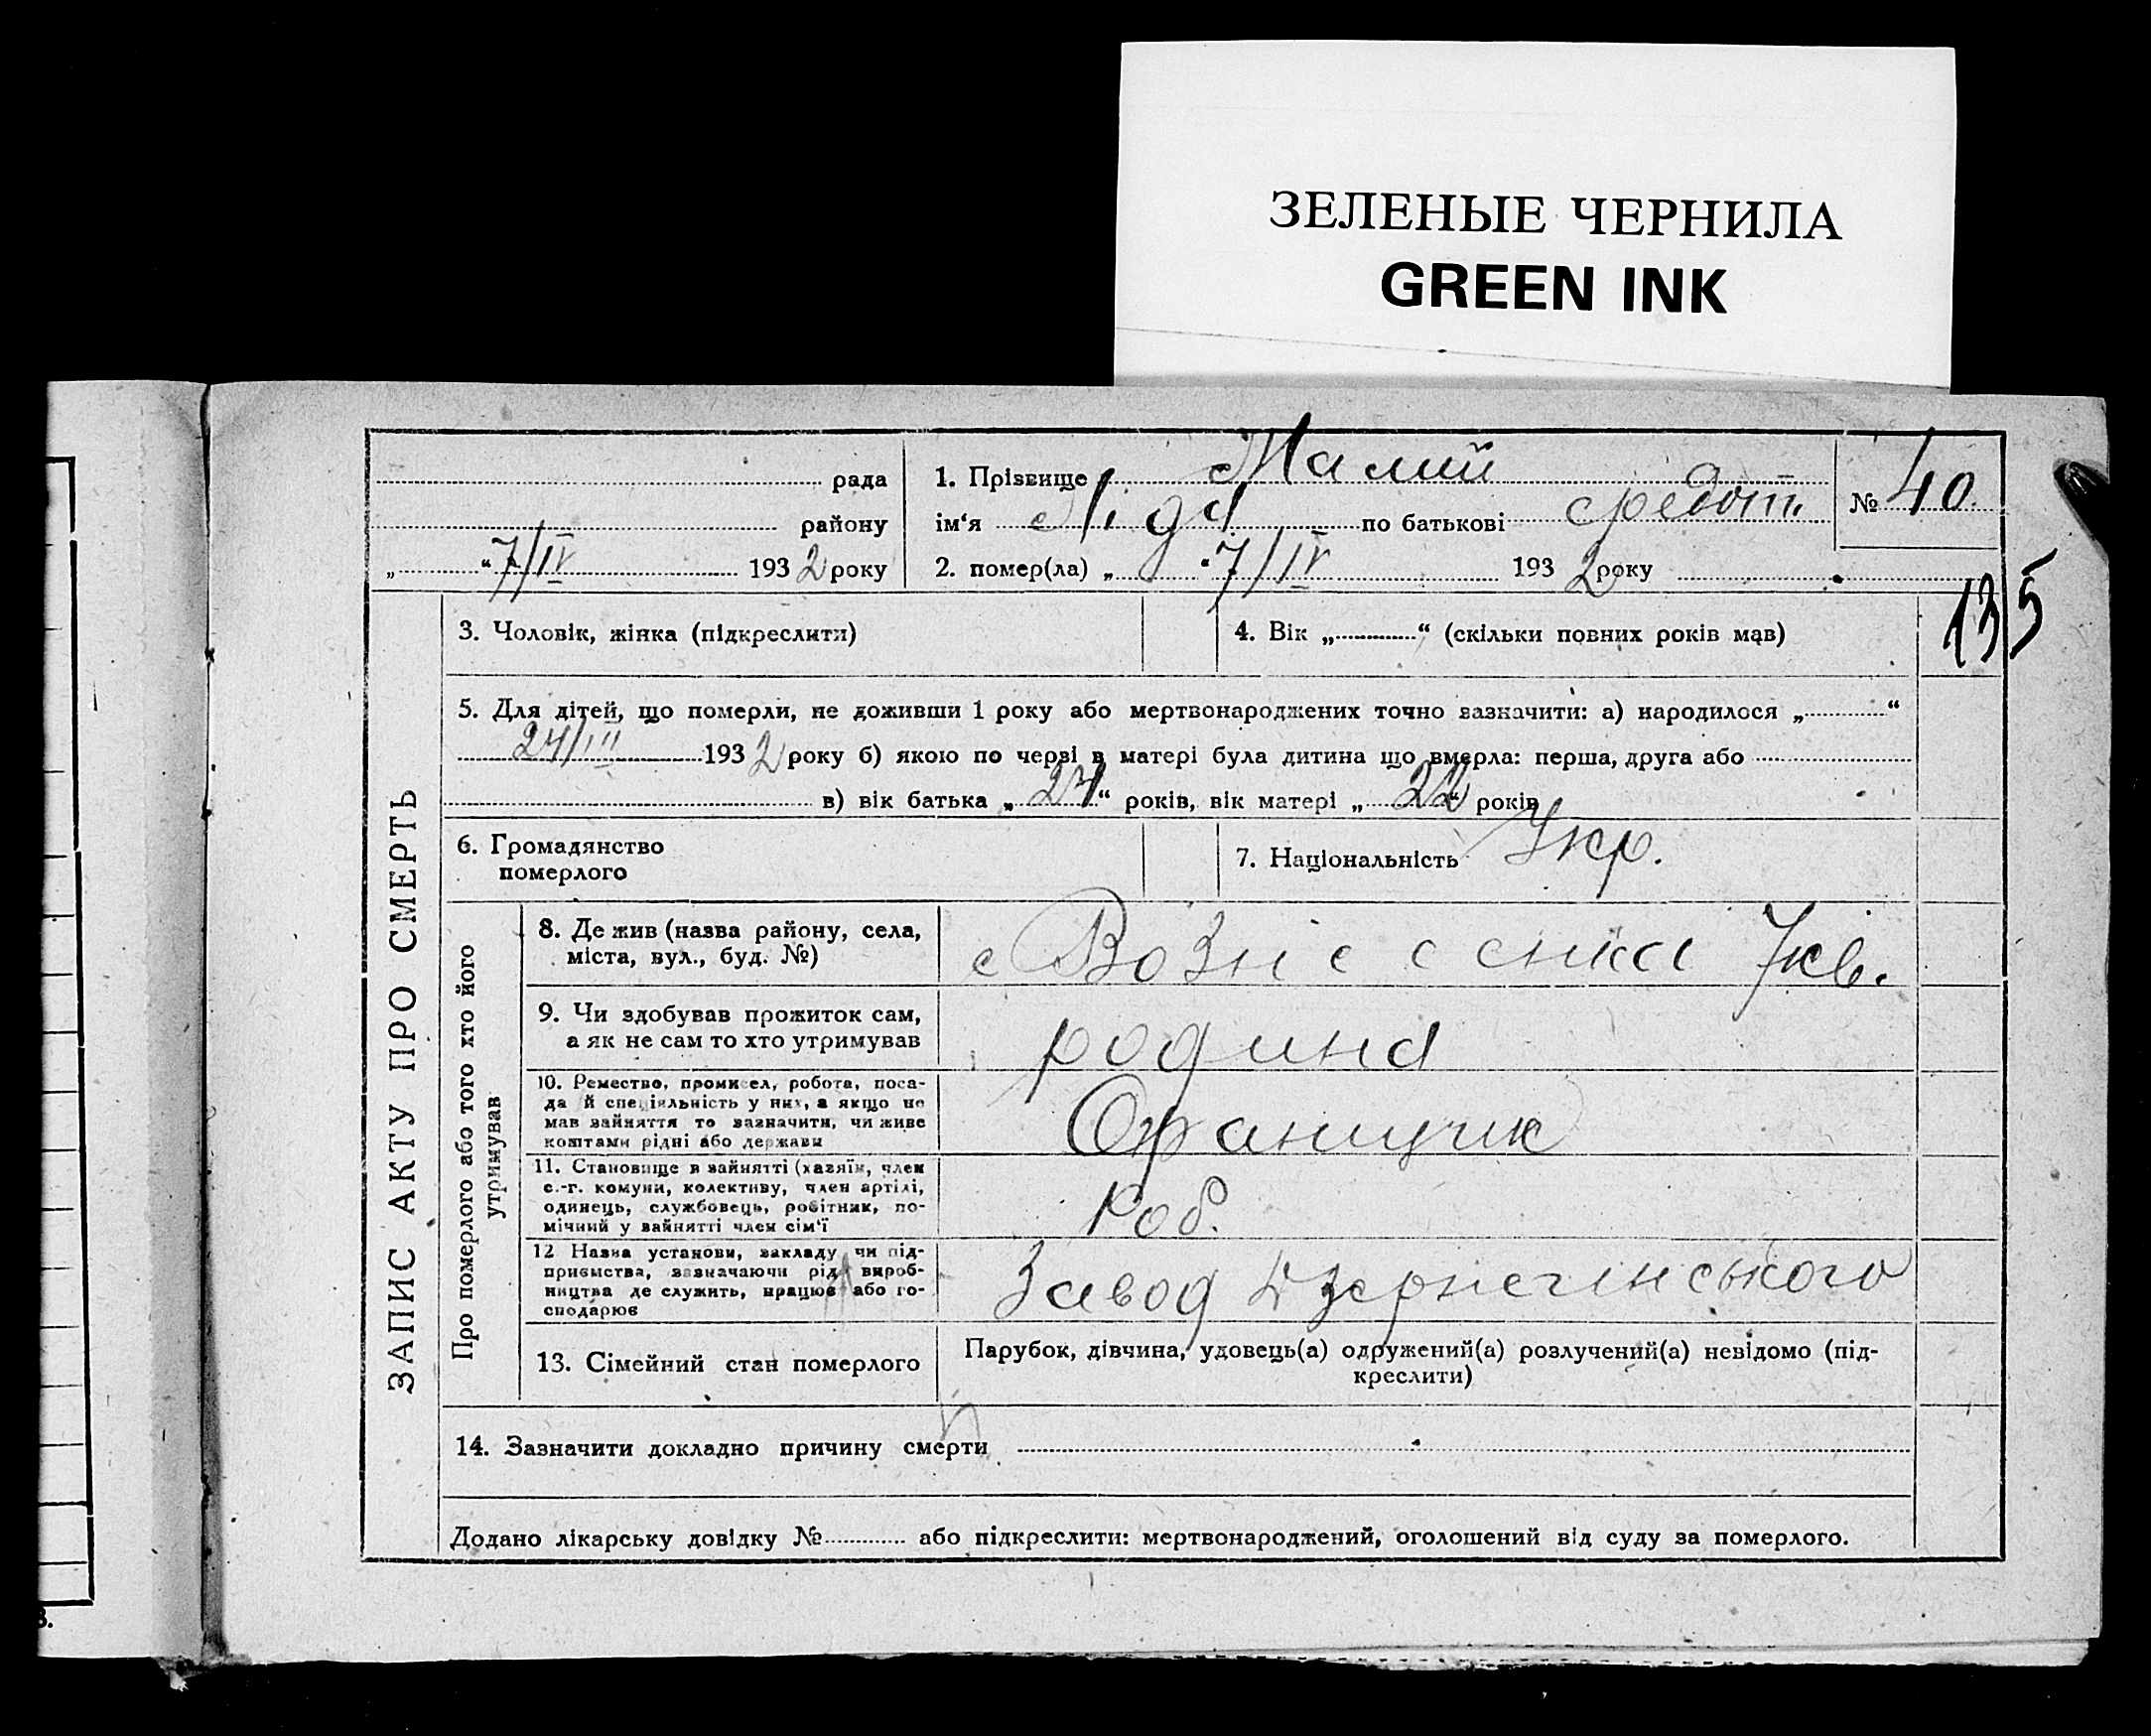 ЗЕЛЕНЫЕ ЧЕРНИЛА
GREEN INK
рада
району
„ “ 7/IV 1932 року
1. Прізвище Малий
ім‘я Ліда по батькові Федот.
2. помер(ла) „ “ 7/IV 1932 року
№ 40.
135
ЗАПИС АКТУ ПРО СМЕРТЬ
3. Чоловік, жінка (підкреслити)
4. Вік „ “ (скільки повних років мав)
5. Для дітей, що померли, не доживши 1 року або мертвонароджених точно зазначити: а) народилося „ “
24/III 1932 року б) якою по черзі в матері була дитина що вмерла: перша, друга або
в) вік батька „ “ років, вік матері „22“ років
6. Громадянство
померлого
7. Національність Укр.
Про померлого або того хто його
утримував
8. Де жив (назва району, села,
міста, вул., буд. №)
с Вознесенка
9. Чи здобував прожиток сам,
а як не сам то хто утримував
родина
10. Ремество, промисел, робота, поса-
да й спеціяльність у них, а якщо не
мав зайняття то зазначити, чи живе
коштами рідні або держави
11. Становище в зайнятті (хазяїн, член
с.-г. комуни, колективу, член артілі,
одинець, службовець, робітник, по-
мічний у зайнятті член сім‘ї
Роб.
12 Назва установи, закладу чи під-
приємства, зазначаючи рід вироб-
ництва де служить, працює або го-
сподарює
Завод Дзержинського
13. Сімейний стан померлого
Парубок, дівчина, удовець(а) одружений(а) розлучений(а) невідомо (під-
креслити)
14. Зазначити докладно причину смерти
Додано лікарську довідку № або підкреслити: мертвонароджений, оголошений від суду за померлого.